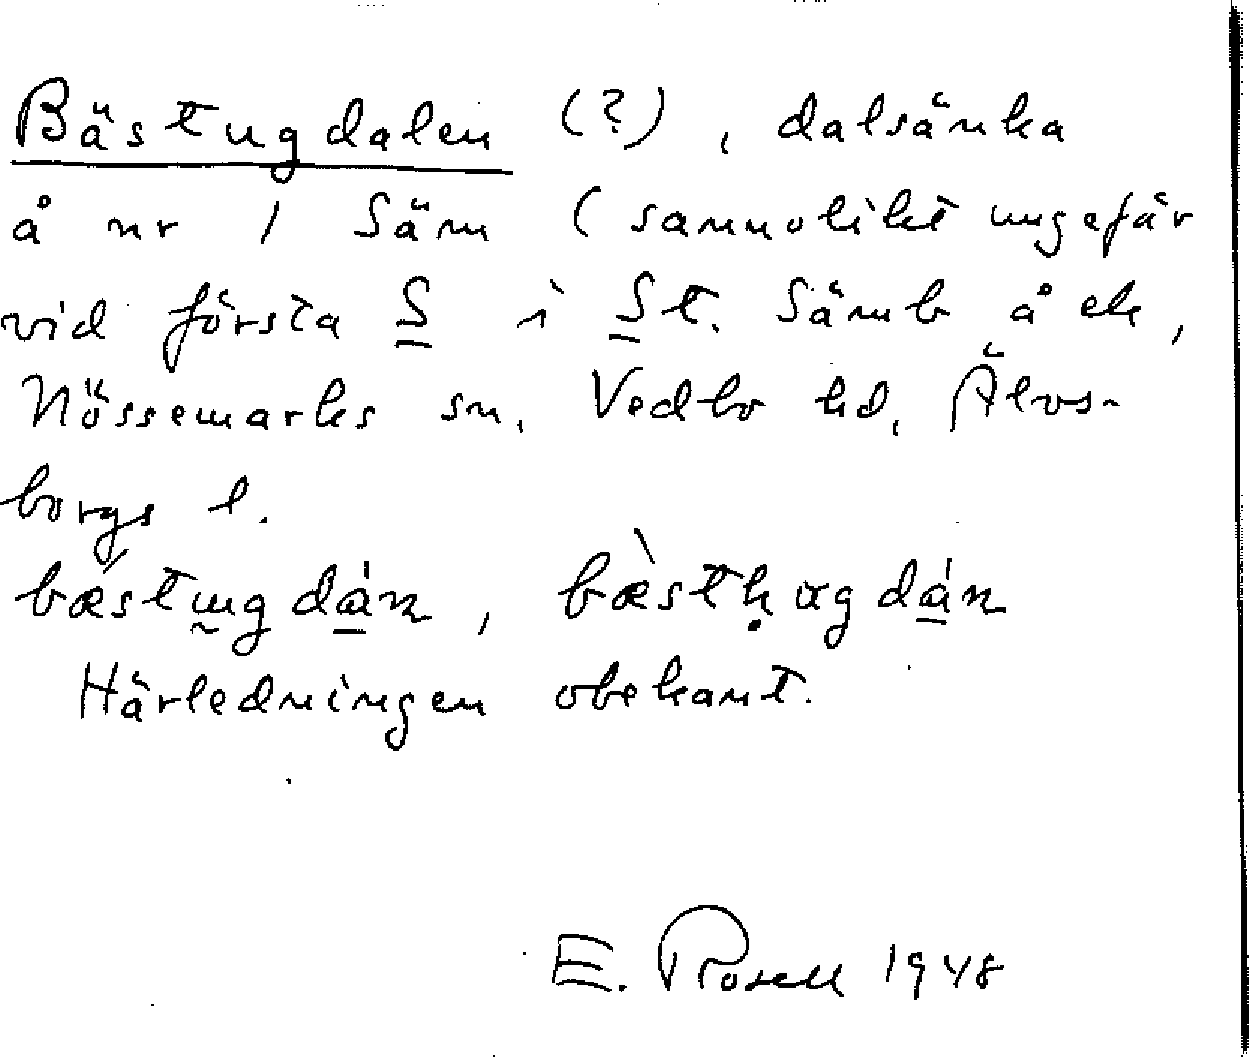 Bästugdalen (?), dalsänka
å nr 1 Säm (sannolikt ungefär
vid första S i St. Sämb å ek,
Nössemarks sn, Vedbo hd, Älvs-
borgs l.
Härledningen obekant.
E. Rosell 1948